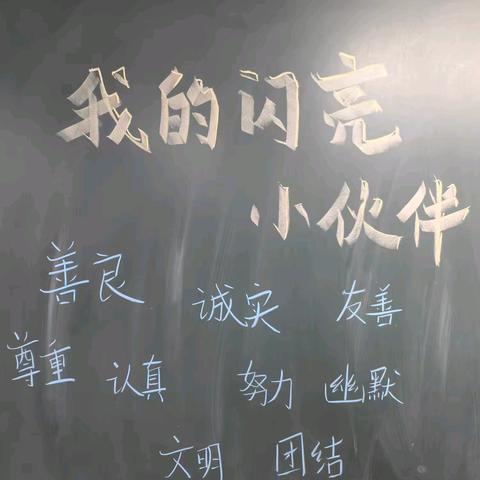 我的闪亮
小伙伴
善良 诚实 友善
尊重 认真 努力 幽默
文明 团结